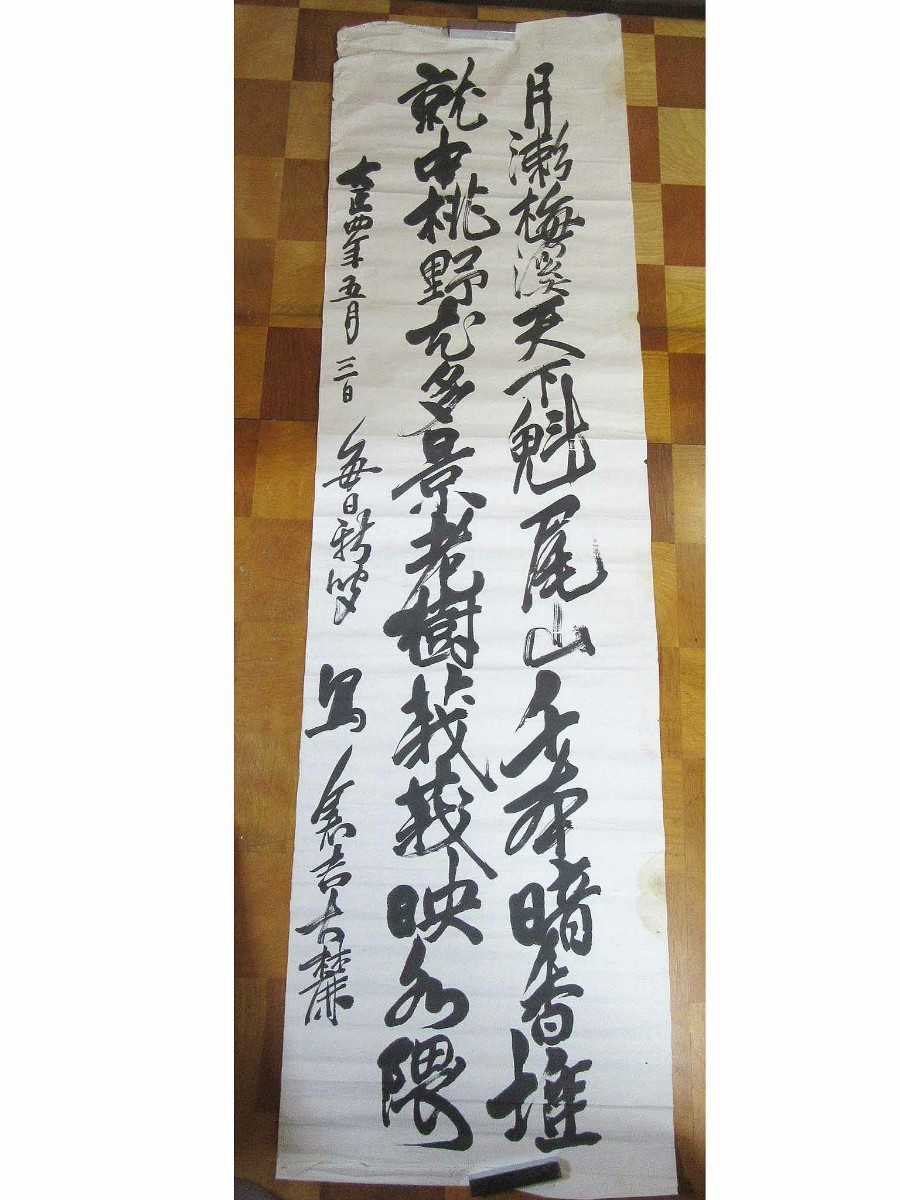 月瀬梅渓天下魁尾山千本暗香堆
就中桃野尤多景老樹莪莪映水隈
大正四年五月三日 毎日 写 倉吉